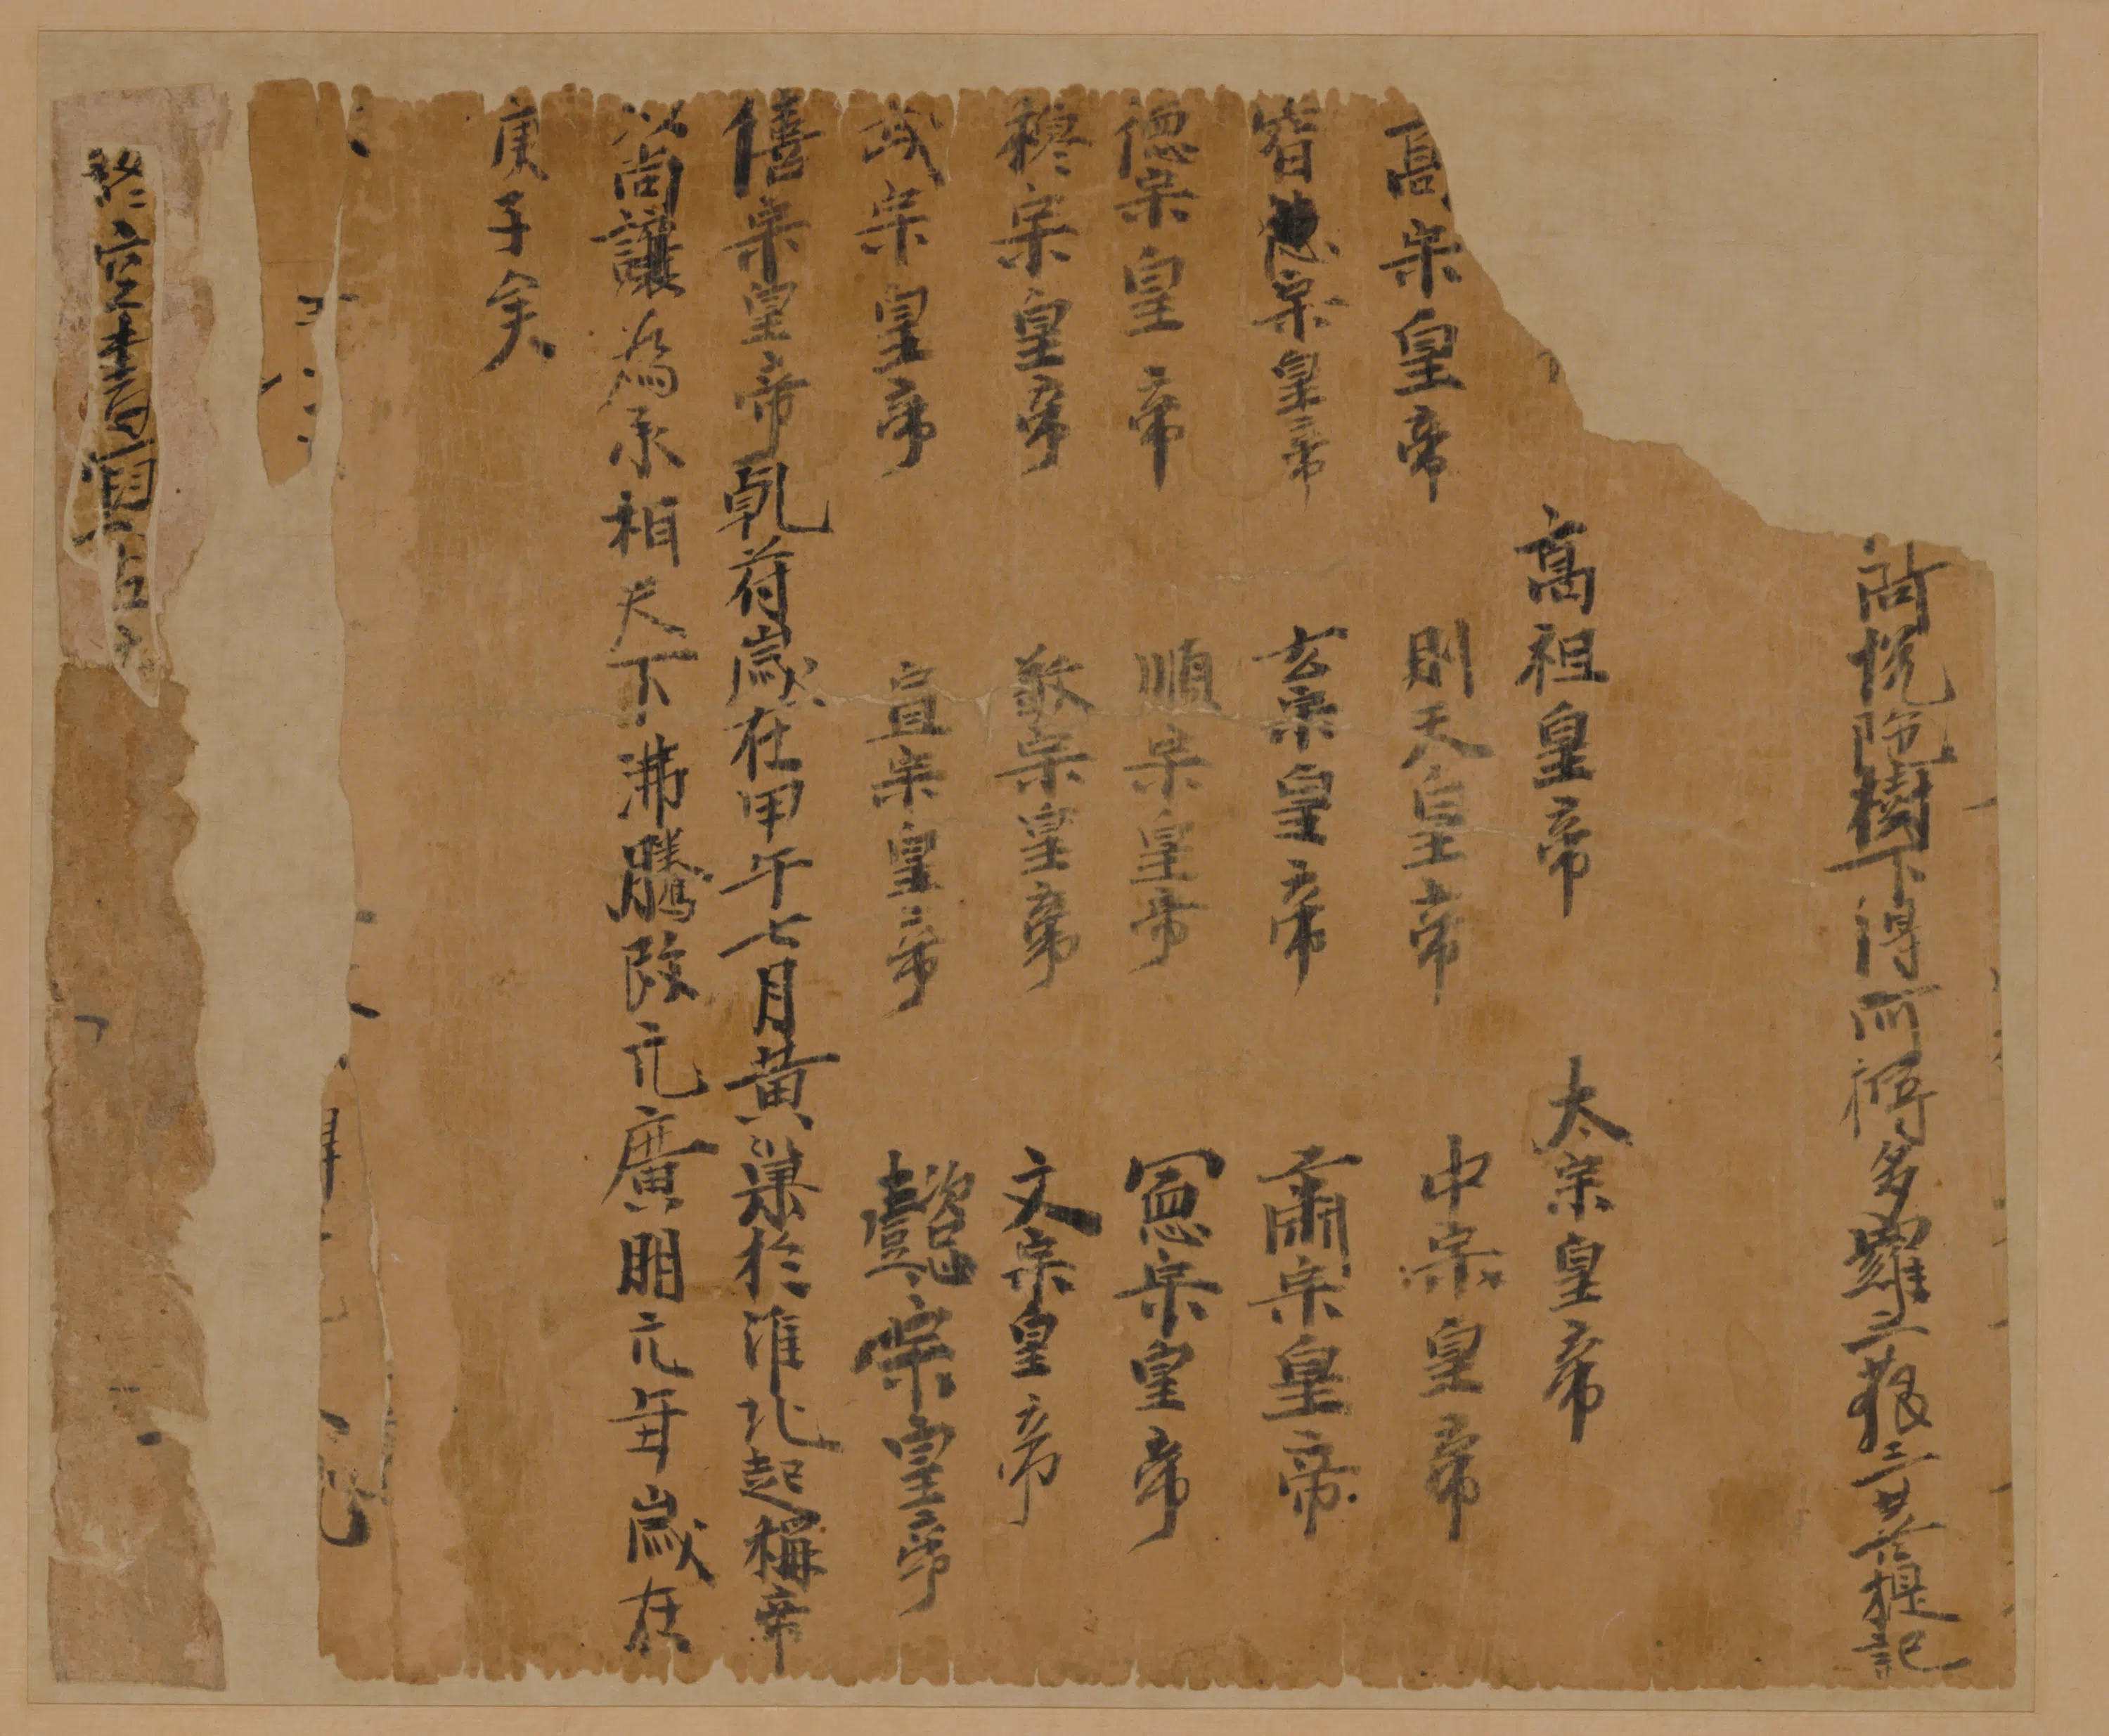 樹下得阿耨多羅三藐三菩提記
高祖皇帝 太宗皇帝
高宗皇帝 則天皇帝 中宗皇帝
睿宗皇帝 玄宗皇帝 肅宗皇帝
德宗皇帝 順宗皇帝 憲宗皇帝
穆宗皇帝 敬宗皇帝 文宗皇帝
武宗皇帝 宣宗皇帝 懿宗皇帝
僖宗皇帝乹苻歲在甲午七月黄巢於淮北起稱帝
以尚讓為承相天下沸騰改元廣明元年歲在
庚子矣